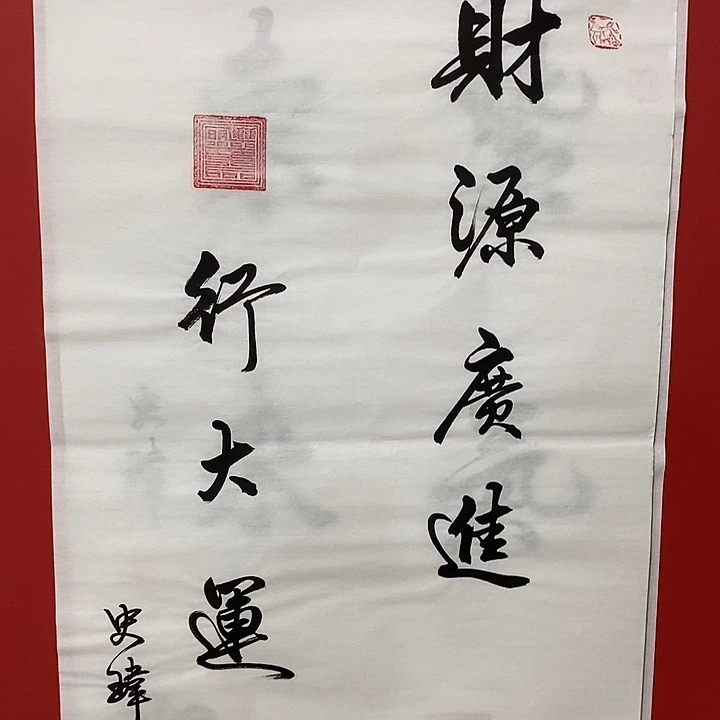 財源廣進
行大運
史瑋